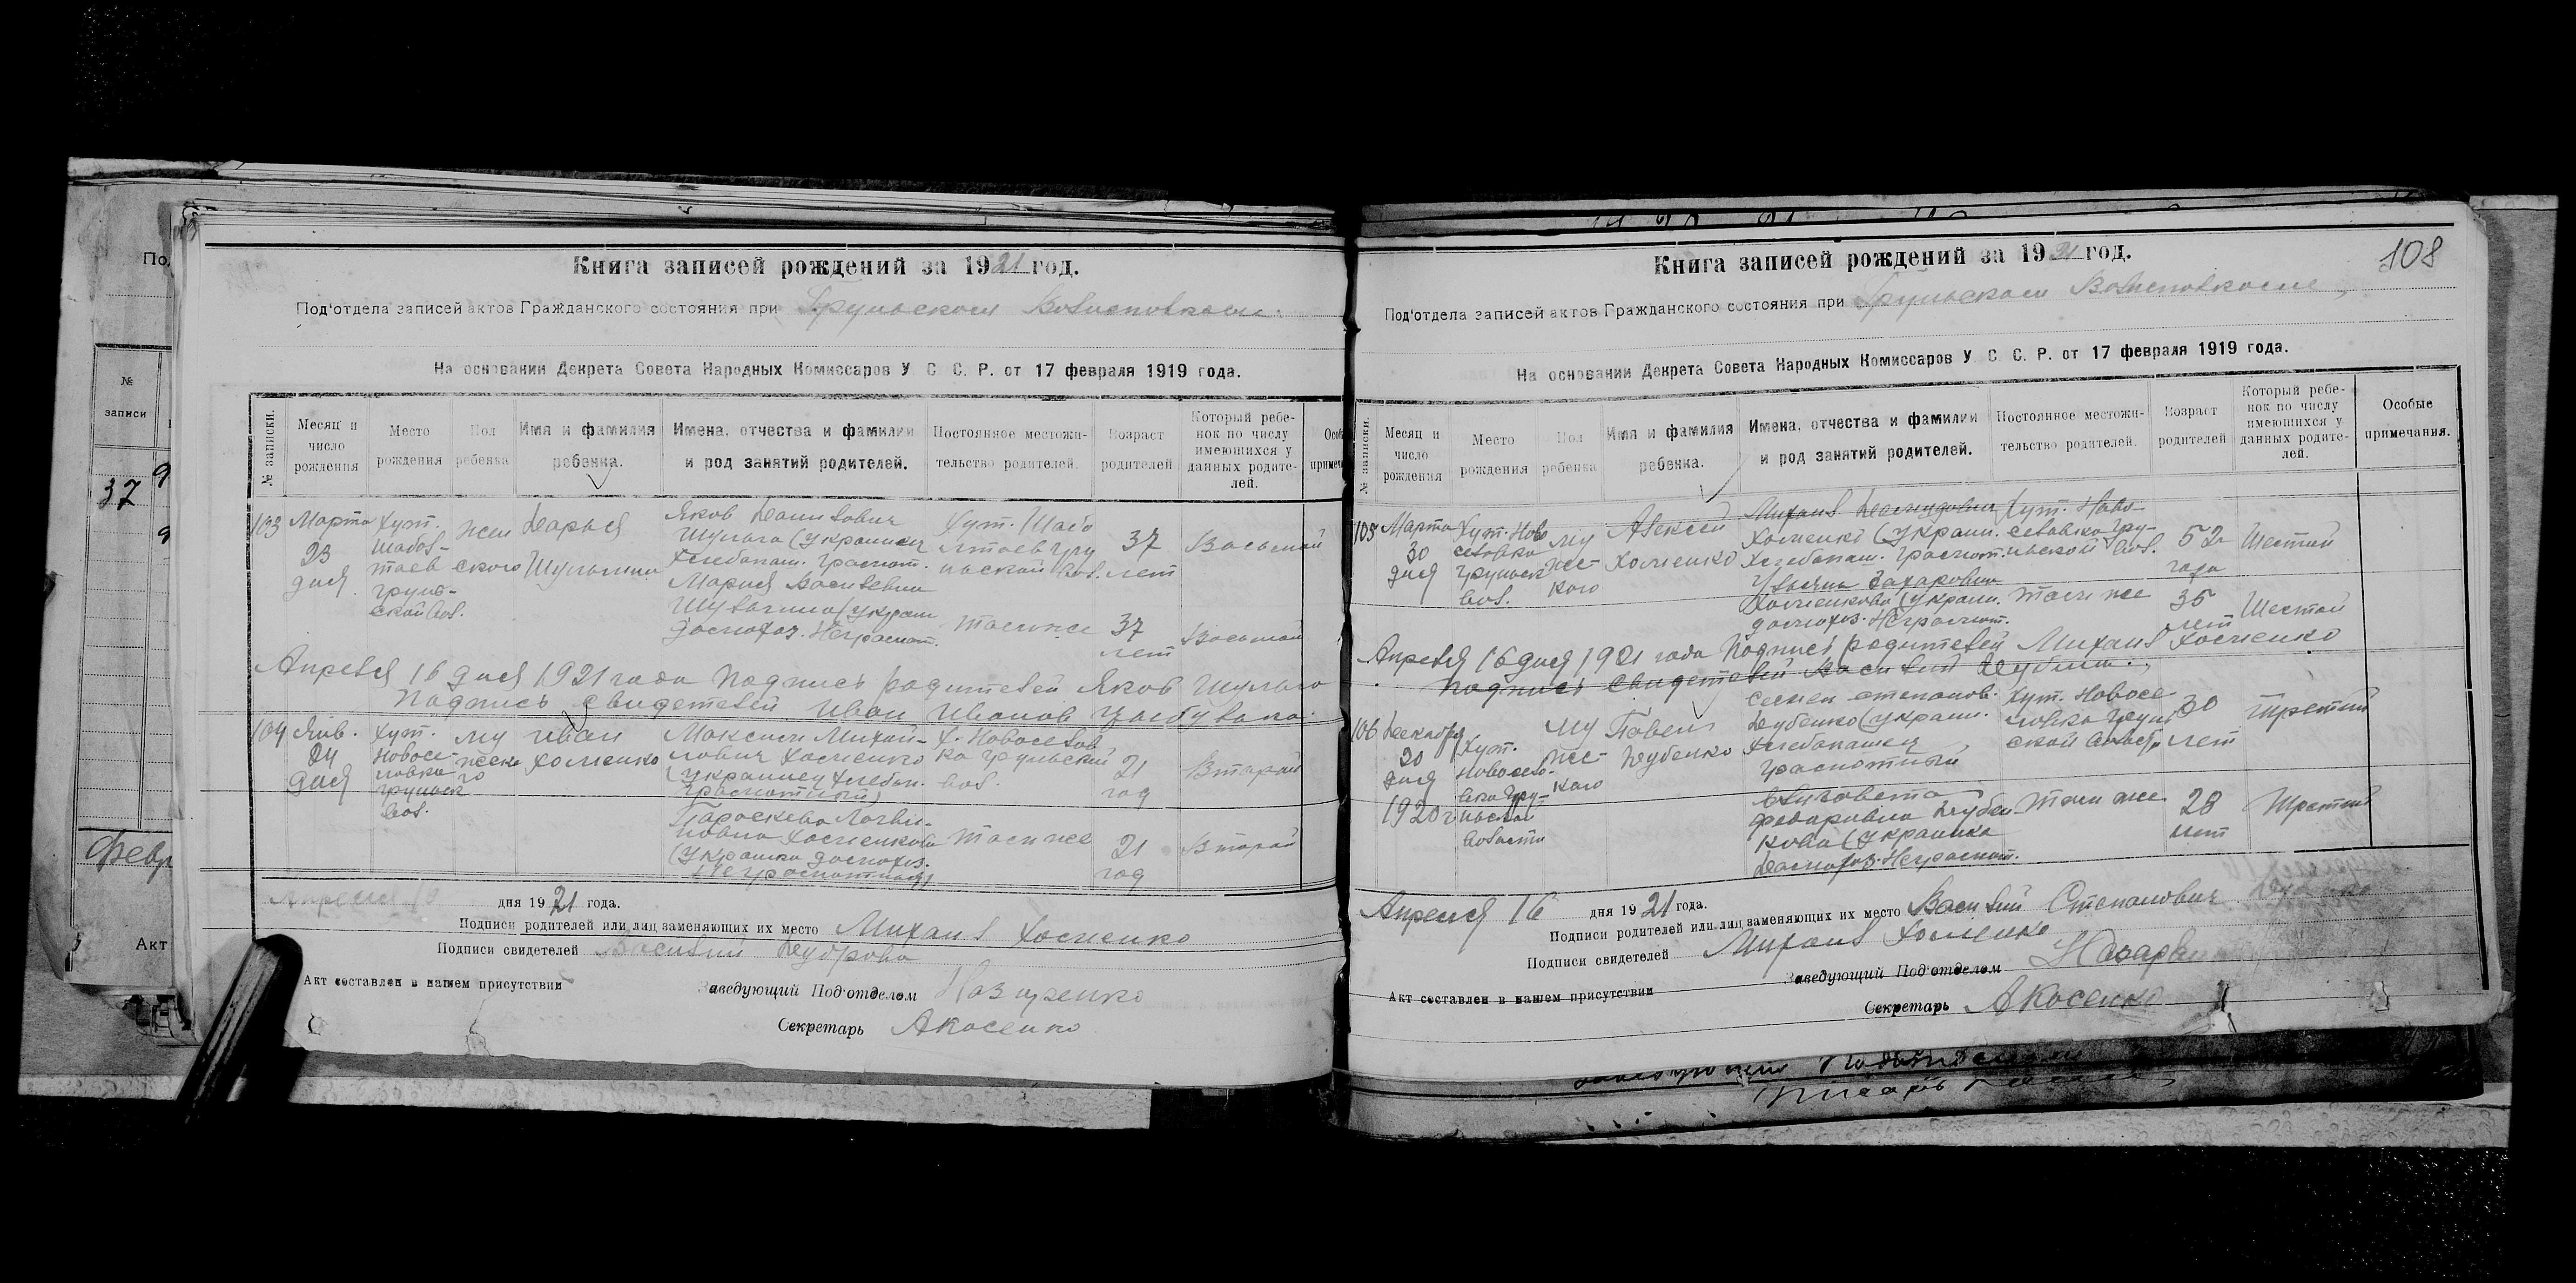 Книга записей рождений за 1921 год.
Под'отдела записей актов Гражданского состояния при Груньском Волисполкоме.
На основании Декрета Совета Народных Комиссаров У. С. С. Р. от 17 февраля 1919 года.
№ записки.
Месяц и число рождения
Место рождения
Пол ребенка
Имя и фамилия ребенка.
Имена, отчества и фамилии и род занятий родителей.
Постоянное местожительство родителей.
Возраст родителей
Который ребенок по числу имеющихся у данных родителей.
103
Марта
23
дня
Хут.
Шабол-
таев
Грунь-
ской вол.
жен
ского
Дарья
Шульгина
Яков
Шульга (украинец
Хлебопаш. Грамот.
Мария Васильевна
Шульгина (украин
домохоз. Неграмот.
Хут. Шабо
лтаев Гру
ньской вол.
там же
37
лет
37
лет
Восьмой
Восьмой
Апреля 16 дня 1921 года Подпись родителей Яков Шульга
Подпись свидетелей Иван Иванов
104
Янв.
24
дня
Хут.
Новосе-
ловка
Груньск
вол.
му
жско
го
Иван
Хоменко
Максим Михай-
лович Хоменко
(украинец хлебоп.
Грамотный)
Параскева Логви-
новна Хоменкова
(украинка домохоз.
Неграмотная)
Х. Новоселов
ка Груньской
вол.
там же
21
год
21
год
Второй
Второй
Апреля 16 дня 1921 года.
Подписи родителей или лиц заменяющих их место Михаил Хоменко
Подписи свидетелей Василий
Акт составлен в нашем присутствии
Заведующий Под'отделом Назаренко
Секретарь А Косенко
108
Книга записей рождений за 1921 год.
Под'отдела записей актов Гражданского состояния при Груньском Волисполкоме
На основании Декрета Совета Народных Комиссаров У. С. С. Р. от 17 февраля 1919 года.
№ записки.
Месяц и число рождения
Место рождения
Пол ребенка
Имя и фамилия ребенка.
Имена, отчества и фамилии и род занятий родителей.
Постоянное местожительство родителей.
Возраст родителей
Который ребенок по числу имеющихся у данных родителей.
Особые примечания.
105
Марта
30
дня
Хут. Ново
селовка
Груньск
вол.
му
жс-
кого
Алексей
Хоменко
Михаил Демидович
Хоменко (украин.
Хлебопаш. Грамот.
Ульяна Захаровна
Хоменкова (украин.
домохоз. Неграмот.
Хут. Ново-
селовка Гру-
ньской вол.
там же
52
года
35
лет
Шестой
Шестой
Апреля 16 дня 1921 года Подпись родителей Михаил Хоменко
Подпись свидетелей Василий
106
Декабря
20
дня
1920 г
Хут.
Новосело-
вка Гру-
ньской
волости
му
жс-
кого
Павел
Дубенко
Семен Степанов.
Дубенко (украин.
Хлебопашец
грамотный
Елизовета
Федоровна Дубен
кова (украинка
Домохоз. Неграмот.
Хут. Новосе
ловка Грунь
ской волости
там же
30
лет
28
лет
Третий
Третий
Апреля 16 дня 1921 года.
Подписи родителей или лиц заменяющих их место Василий Степанович Дубенко
Подписи свидетелей Михаил Хоменко
Акт составлен в нашем присутствии
Заведующий Под'отделом
Секретарь А Косенко
№ записи
37
Февр
Акт